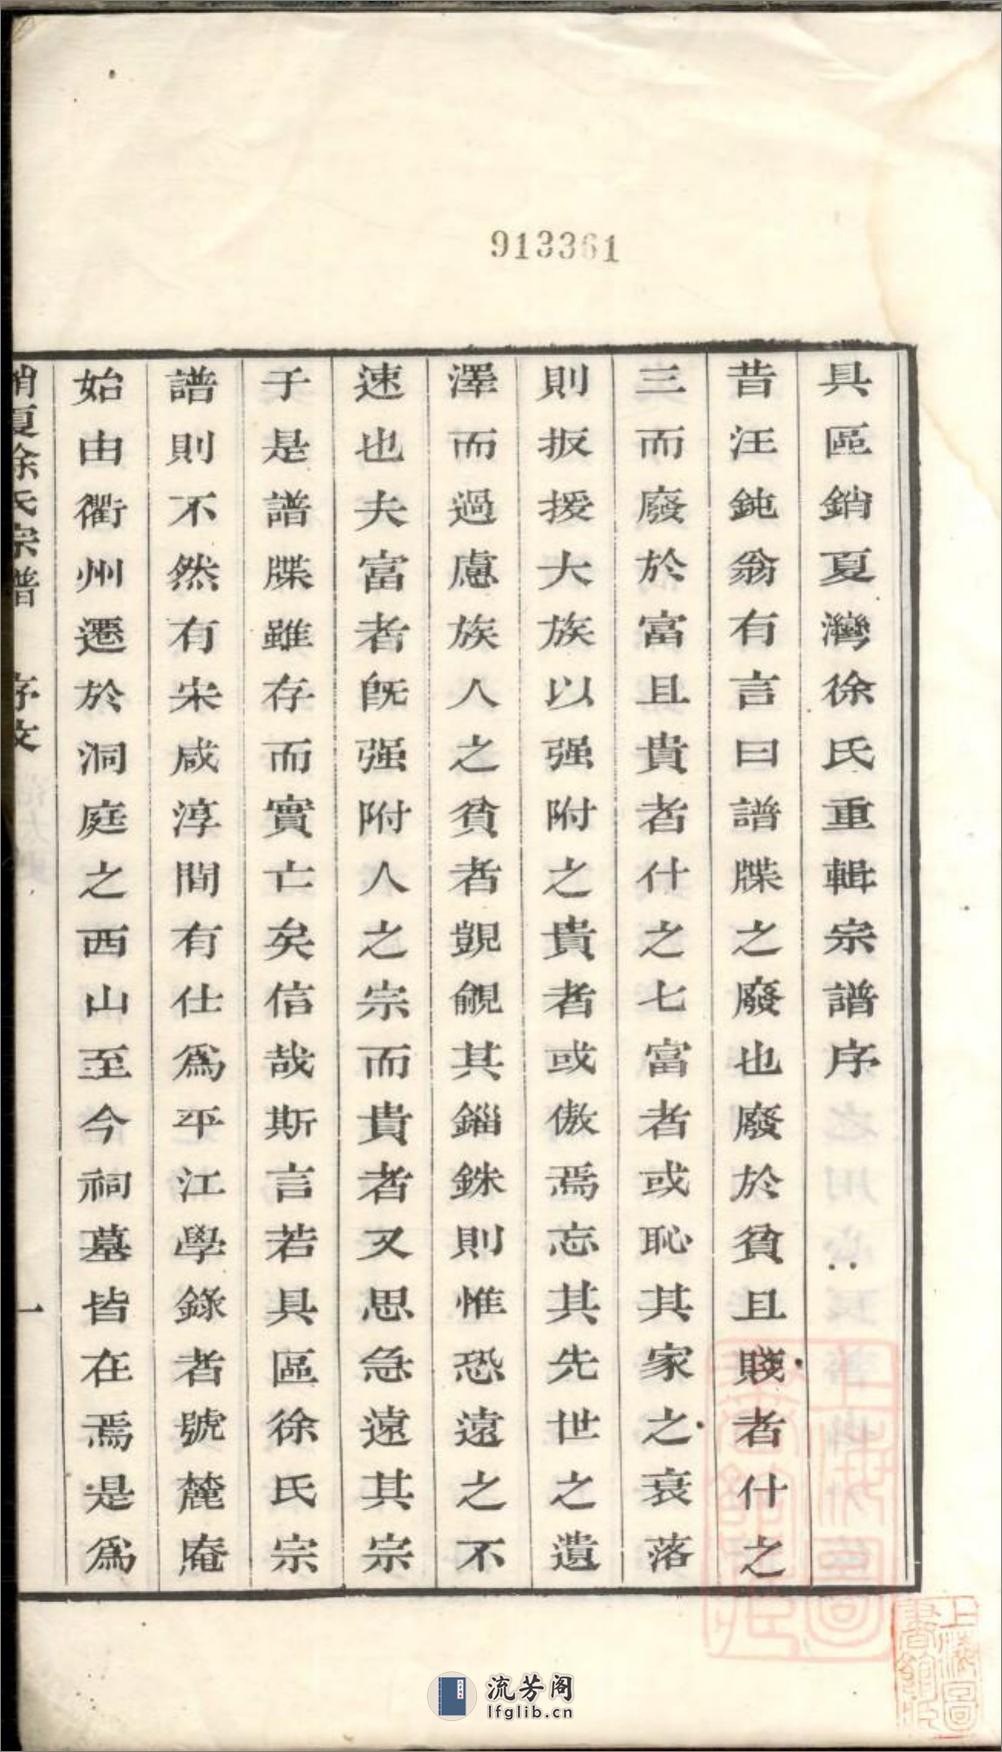 913361
具區銷夏灣徐氏重輯宗譜序
昔汪鈍翁有言曰譜牒之廢也廢於貧且賤者什之
三而廢於富且貴者什之七富者或恥其家之衰落
則扳援大族以强附之貴者或傲焉忘其先世之遺
澤而過慮族人之貧者覬覦其錙銖則惟恐遠之不
速也夫富者旣强附人之宗而貴者又思急遠其宗
于是譜牒雖存而實亡矣信哉斯言若具區徐氏宗
譜則不然有宋咸淳間有仕爲平江學錄者號麓庵
始由衢州遷於洞庭之西山至今祠墓皆在焉是爲
銷夏徐氏宗譜 序文 一
上海圖書館藏
上海圖書館藏
流芳阁
lfglib.cn